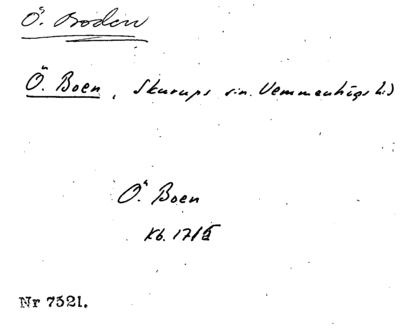 Ö. Boden
Ö. Boen, Skurups sn. Vemmenhögs hd
Ö. Boen
Kb. 17/II
Nr 7521.